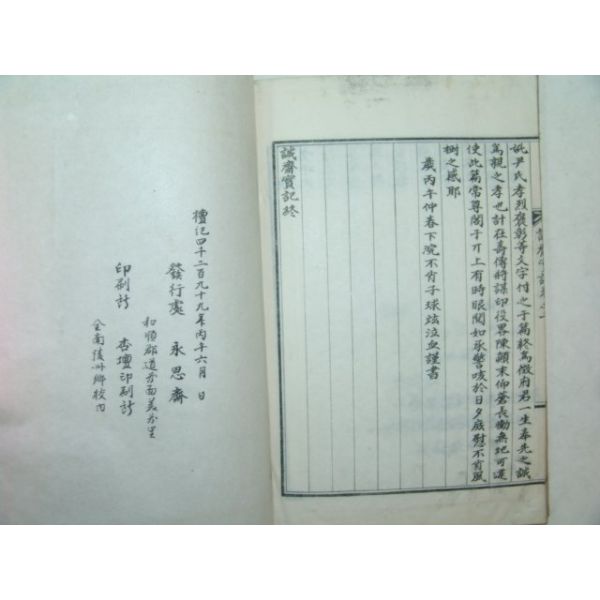 妣尹氏孝烈褒彰等文字付之于篇終爲徵府君一生奉先之誠
篤親之孝也計在壽傳將謀印役畧陳顚末仰蒼長慟無地可逮
使此篇常尊閣于丌上有時眼閱如承警咳於日夕庶慰不肖風
樹之感耶
歲丙午仲春下浣不肖子球鉉泣血謹書
誠齋實記終
檀紀四千二百九十九年丙午六月 日
發行處 永思齋
和順郡道谷面美谷里
印刷所 杏壇印刷所
全南綾州鄕校內